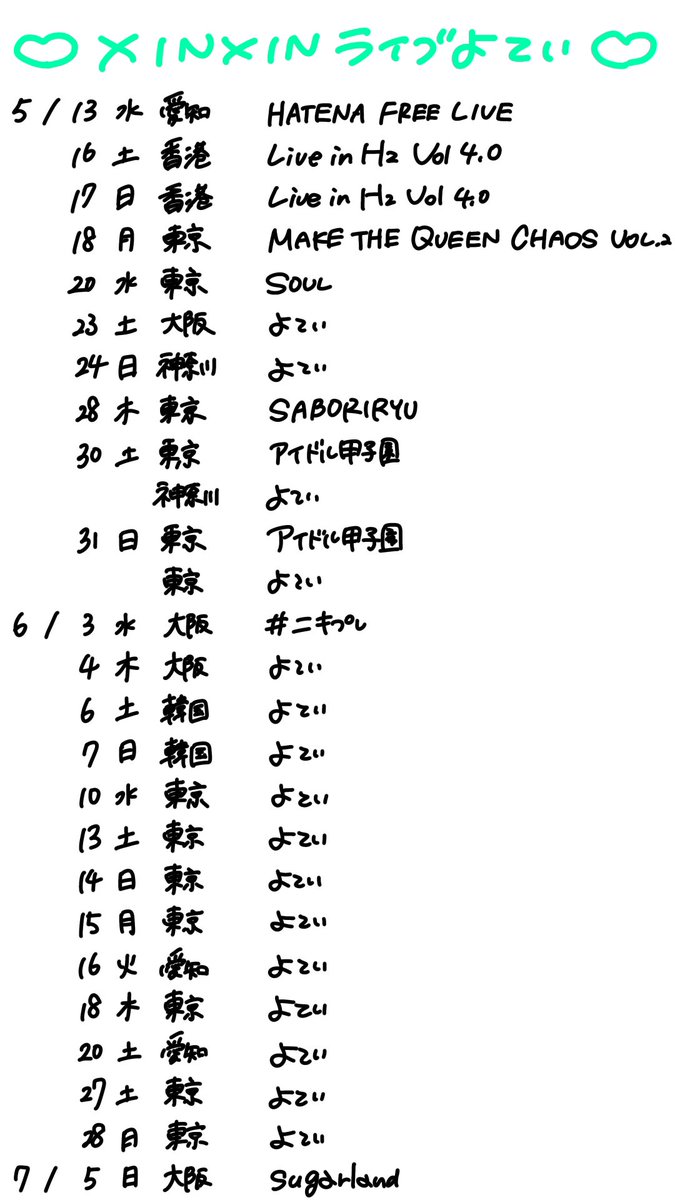 XINXIN ライブよてい
5/13 水 愛知 HATENA FREE LIVE
16 土 香港 Live in H2 Vol 4.0
17 日 香港 Live in H2 Vol 4.0
18 月 東京 MAKE THE QUEEN CHAOS VOL.2
20 水 東京 SOUL
23 土 大阪 よてい
24 日 神奈川 よてい
28 木 東京 SABORIRYU
30 土 東京 アイドル甲子園
神奈川 よてい
31 日 東京 アイドル甲子園
東京 よてい
6/3 水 大阪 #ニキプレ
4 木 大阪 よてい
6 土 韓国 よてい
7 日 韓国 よてい
10 水 東京 よてい
13 土 東京 よてい
14 日 東京 よてい
15 月 東京 よてい
16 火 愛知 よてい
18 木 東京 よてい
20 土 愛知 よてい
27 土 東京 よてい
28 月 東京 よてい
7/5 日 大阪 sugarland